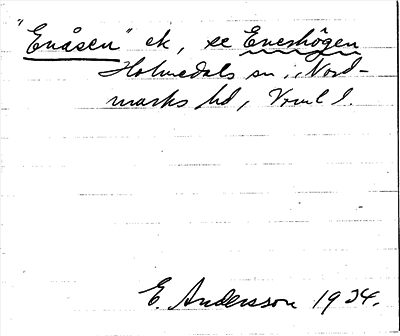 "Enåsen" ek, se Eneshögen
Holmedals sn, Nord-
marks hd, Vrml l.
E. Andersson 1934.